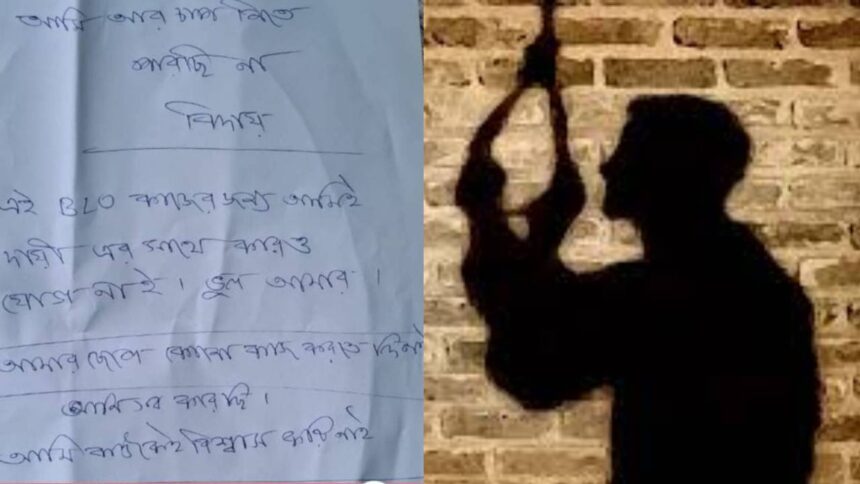 আমি আর চাপ নিতে
পারছি না
বিদায়
এই BLO কাজের জন্য আমিই
দায়ী এর সাথে কারও
যোগ নাই। ভুল আমার।
আমার ছেলে কোনো কাজ করতে
আমি সব করেছি।
আমি কাউকেই বিশ্বাস করি নাই